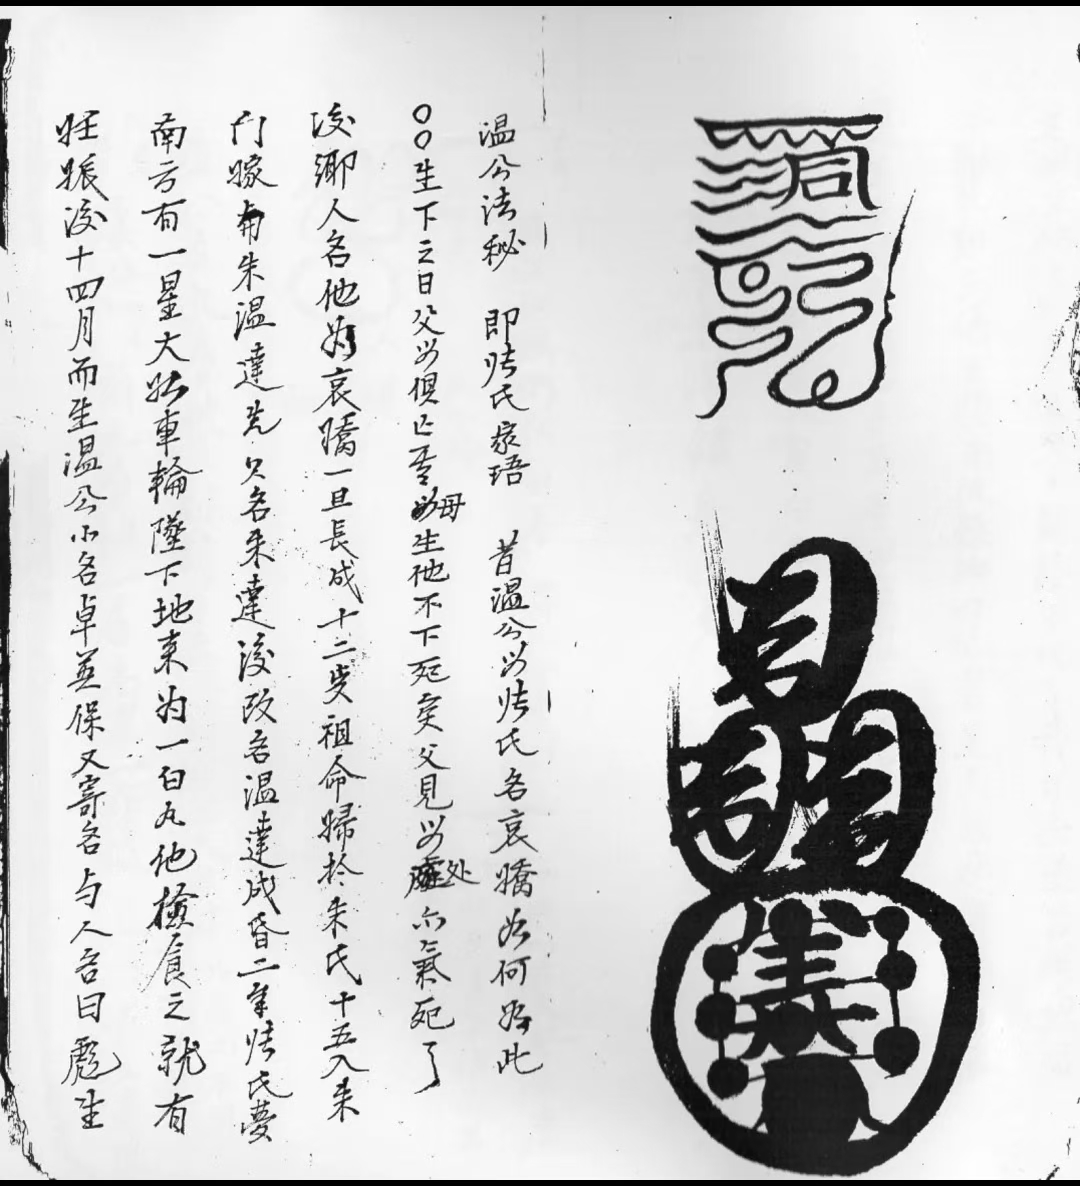 温公法秘 即张氏家語 昔温公母张氏名哀矯如何如此
〇〇生下之日父母俱亡吾母生他不下死矣父見母处亦氣死了
後鄉人名他為哀矯一旦長成十二岁祖命歸於朱氏十五入朱
門嫁与朱温達先父名朱達後改名温達成昏二年张氏夢
南方有一星大如車輪墜下地来为一白丸他撿食之就有
妊娠後十四月而生温公小名卓並保又寄名与人名曰彪生